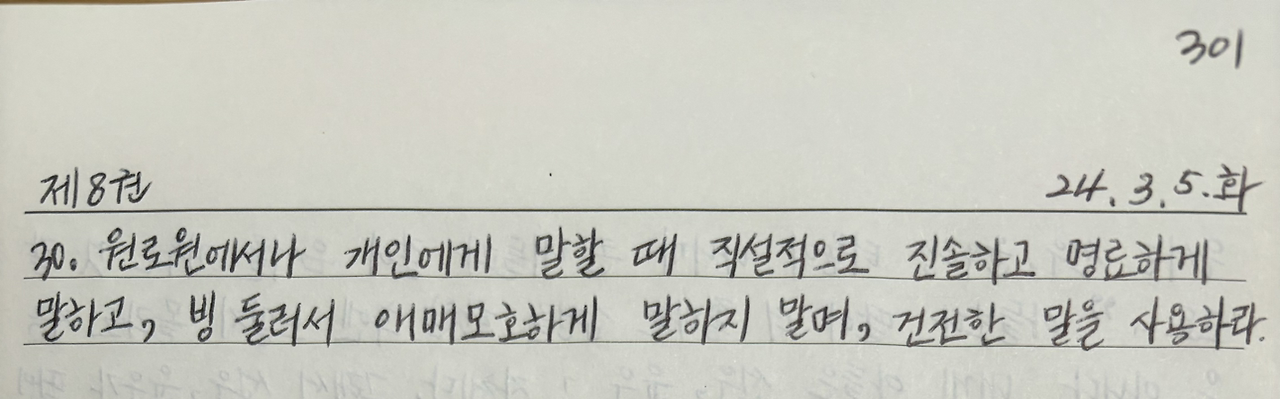 301
제8권 24.3.5.화
30. 원로원에서나 개인에게 말할 때 직설적으로 진솔하고 명료하게
말하고, 빙 둘러서 애매모호하게 말하지 말며, 건전한 말을 사용하라.